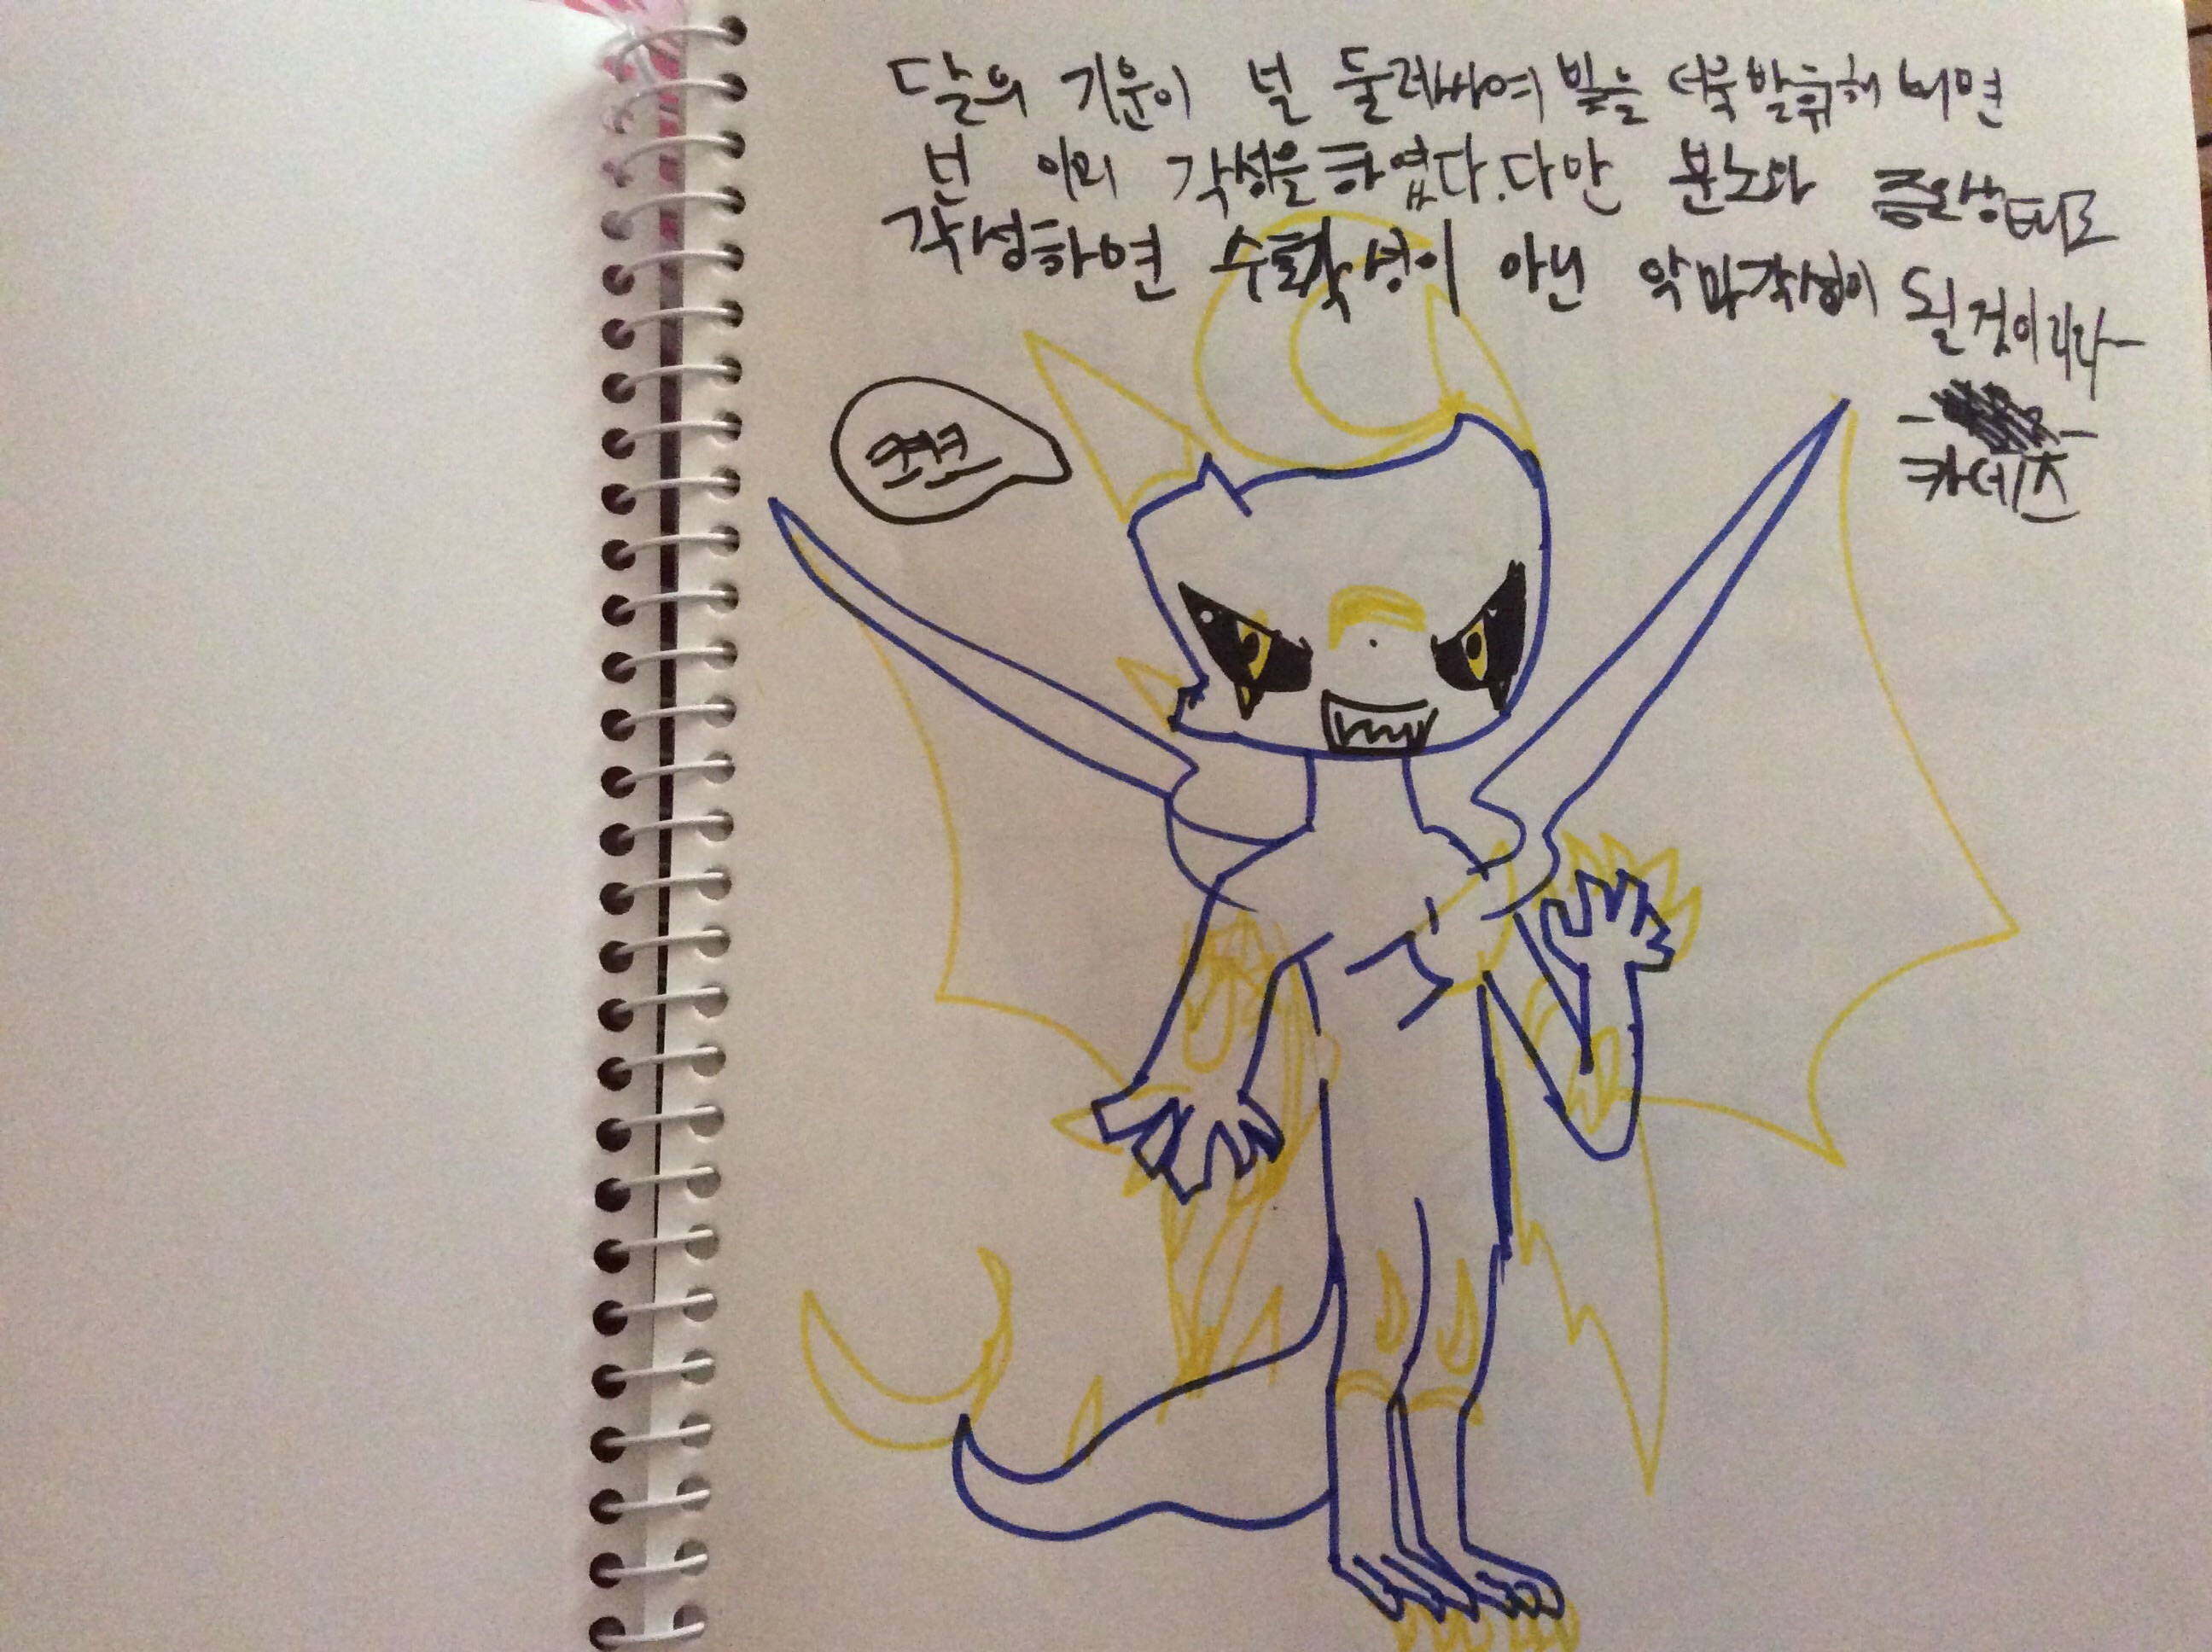 달의 기운이 널 둘러싸여 빛을 더욱 발휘해 내면
넌 이미 각성을 하였다. 다만 분노와 증오상태로
각성하면 수호각성이 아닌 악마각성이 될것이니라-
카데스